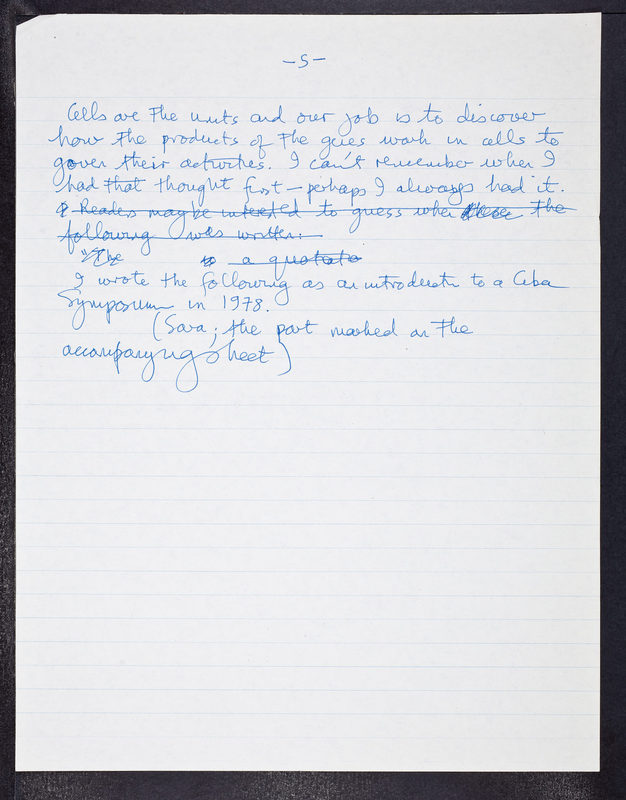 -5-
Cells are the units and our job is to discover
how the products of the genes work in cells to
gover their activities. I can't remember when I
had that thought first - perhaps I always had it.
Readers may be interested to guess when the
following was written:
"The a quotate
I wrote the following as an introduction to a Ciba
Symposium in 1978.
(Sara; the part marked on the
accompanying sheet)